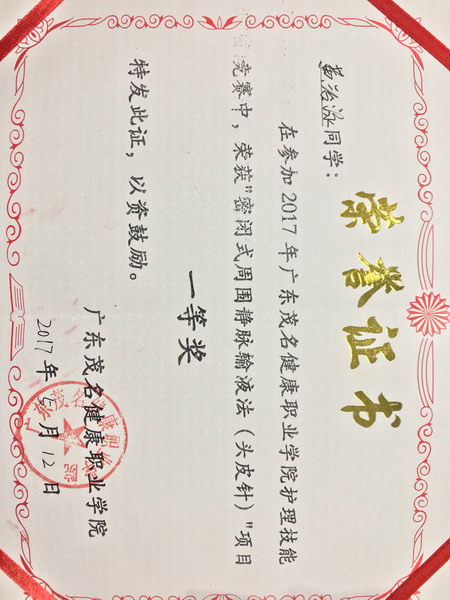 荣誉证书
同学：
在参加2017年广东茂名健康职业学院护理技能
竞赛中，荣获"密闭式周围静脉输液法（头皮针）"项目
一等奖
特发此证，以资鼓励。
广东茂名健康职业学院
2017年5月12日